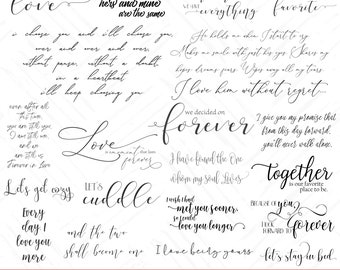 Love
hers and mine
are the same
we have
everything
favorite
i choose you and i'll choose you,
over and over and over,
without pause, without a doubt,
in a heartbeat
i'll keep choosing you
He holds me when I start to cry
Makes me smile with just his eyes
I love him without regret...
even after all
this time,
you are still you,
I am still me,
and we are
still us
forever in love
Love
forever
we decided on
forever
I give you my promise that
from this day forward,
you'll never walk alone.
I have found the One
whom my soul Loves
together
is our favorite
place to be
Let's get cozy
LET'S
cuddle
I wish I had
met you sooner,
so I could
love you longer
BECAUSE OF you
I LOOK
FORWARD TO
forever
Every
day I
love you
more
and the two
shall become one
I love being yours
let's stay in bed